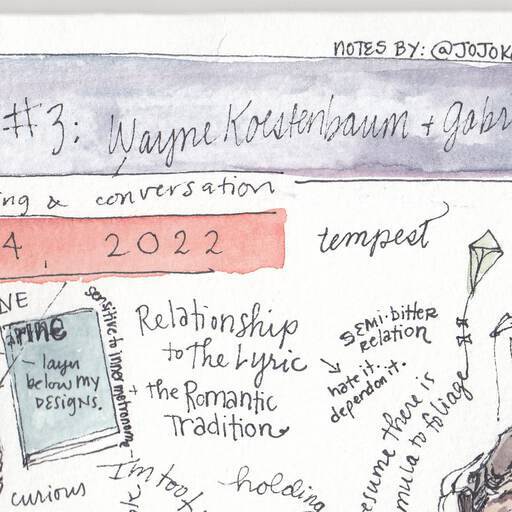 NOTES BY: @JOJOK
#3: Wayne Koestenbaum + Gabr
ng & conversation
4, 2022
tempest
VE
arine
layu
below my
DESIGNS.
sensitive to inner metronome
Relationship
to The Lyric
+ the Romantic
Tradition
SEMI-bitter
Relation
hate it..
depend on it.
esume there is
mula to foliage
I'm too
holding
curious